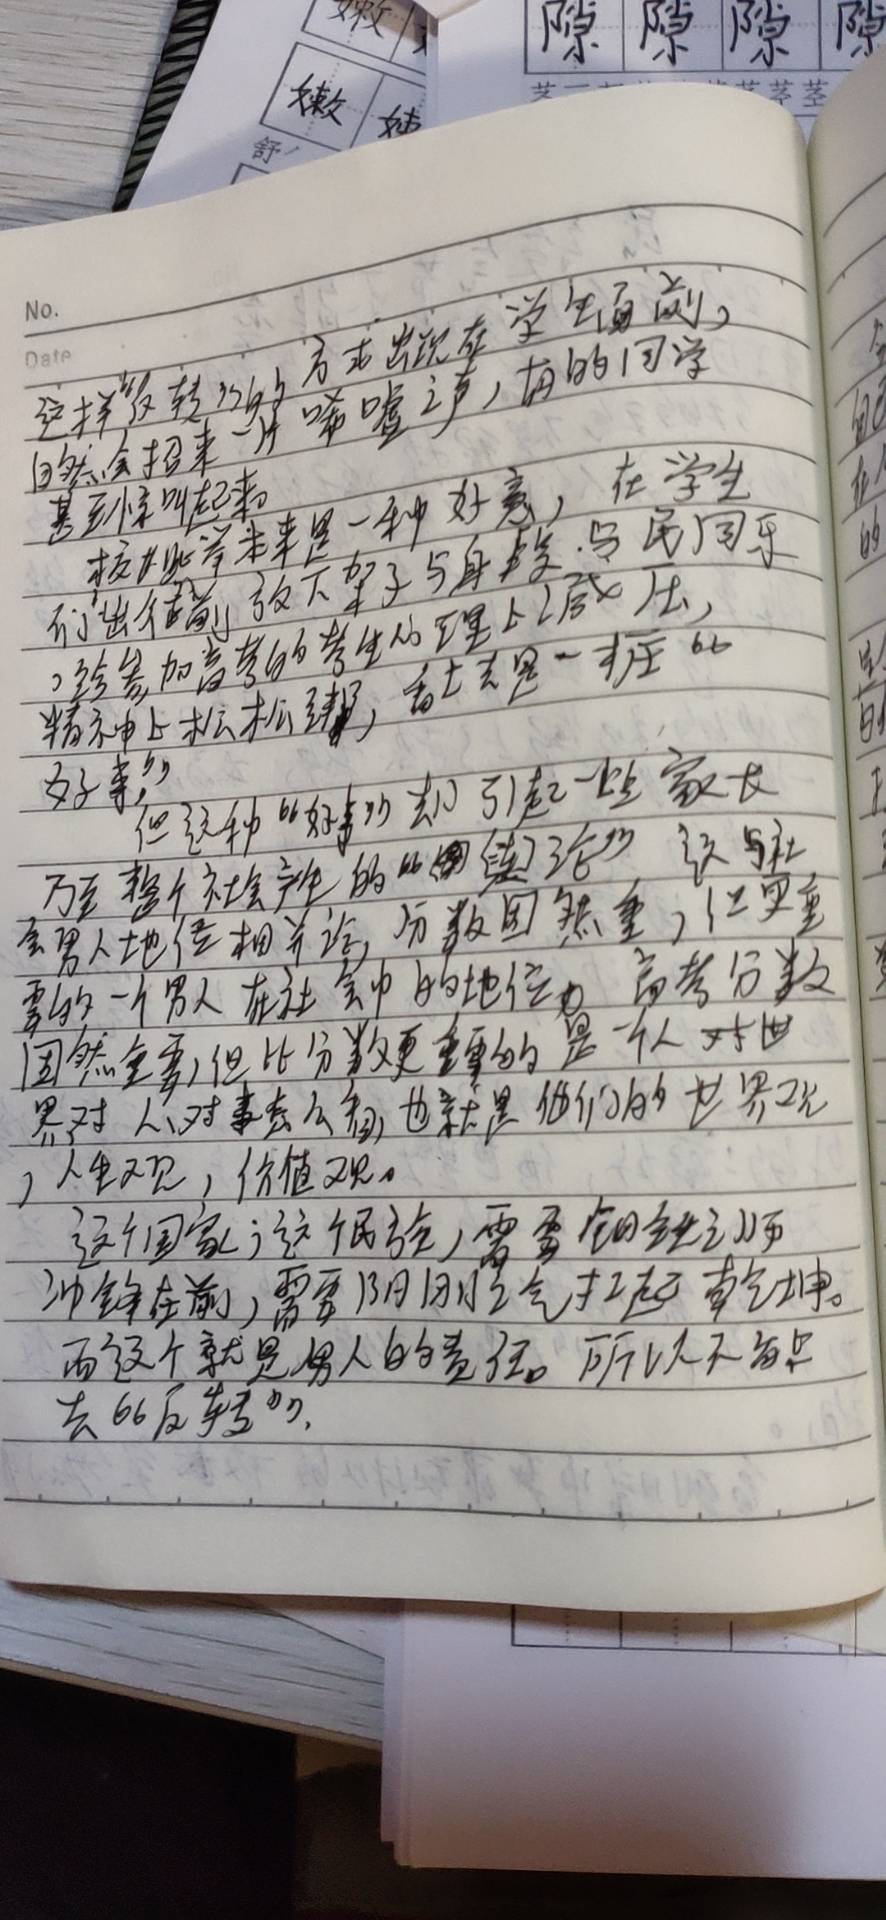 嫩
隙 隙 隙 隙
嫩 嫩
舒
茎 茎
No.
Date
这样"反转"的方式出现在学生面前,
自然会招来一片唏嘘之声,有的同学
甚至惊叫起来
校长此举本来是一种好意,在学生
们出征前放下架子与身段.与民同乐
,给参加高考的考生心理上减压,
精神上松松绑,看上去是一桩"
好事"
但这种"好事"却引起一些家长
乃至整个社会产生的" 论" 这与社
会男人地位相并论,分数固然重,但更重
要的一个男人在社会中的地位。高考分数
固然重要,但比分数更重要的是一个人对世
界,对人、对事怎么看,也就是他们的世界观
,人生观,价值观。
这个国家,这个民族,需要钢铁之师
冲锋在前,需要阳刚之气扛起乾坤。
而这个就是男人的责任。所以不多只
去"反转".